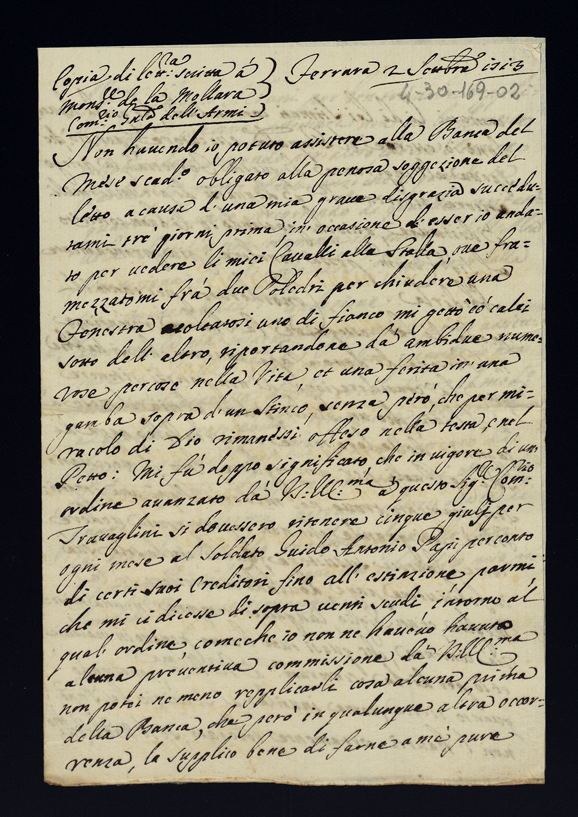 Copia di let.ra scritta á ) Ferrara 2 Settbre 1513
Mons.re de la Mollara )
Com.rio Gnle dell'Armi )
4-30-169-02
Non havendo io potuto assistere alla Banca del
Mese scad.o obligato alla penosa soggezione del
letto a causa d'una mia grave disgrazia succedu-
tami tré giorni prima in occasione d'esser io anda-
to per vedere li miei Cavalli alla Stalla, ove fra-
mezzatomi frá due Poledri per chiudere una
Fenestra uno di fianco mi gettó có calci
sotto dell'altro, riportandone dá ambidue nume-
rose percose nella Vita, et una ferita in una
gamba sopra d'un Stinco, senza peró, che per mi-
racolo di Dio rimanessi offeso nella testa, e nel
Petto: Mi fú doppo significato, che in vigore di un
ordine avanzato dá V:Ill:ma á questo Sig.re Com.rio
Travaglini si dovessero ritenere cinque giulj per
ogni mese al soldato Guido Antonio Papi per conto
di certi suoi Creditori fino all'estinzione parmi
che mi si dicesse di sopra venti scudi, intorno al
qual'ordine, come che io non ne havevo havuta
alcuna préventiva commissione dá V:Ill:ma
non potei ne meno repplicarli cosa alcuna prima
della Banca, che peró in qualunque altra occor-
renza, la supplico bene di farne a mé pure